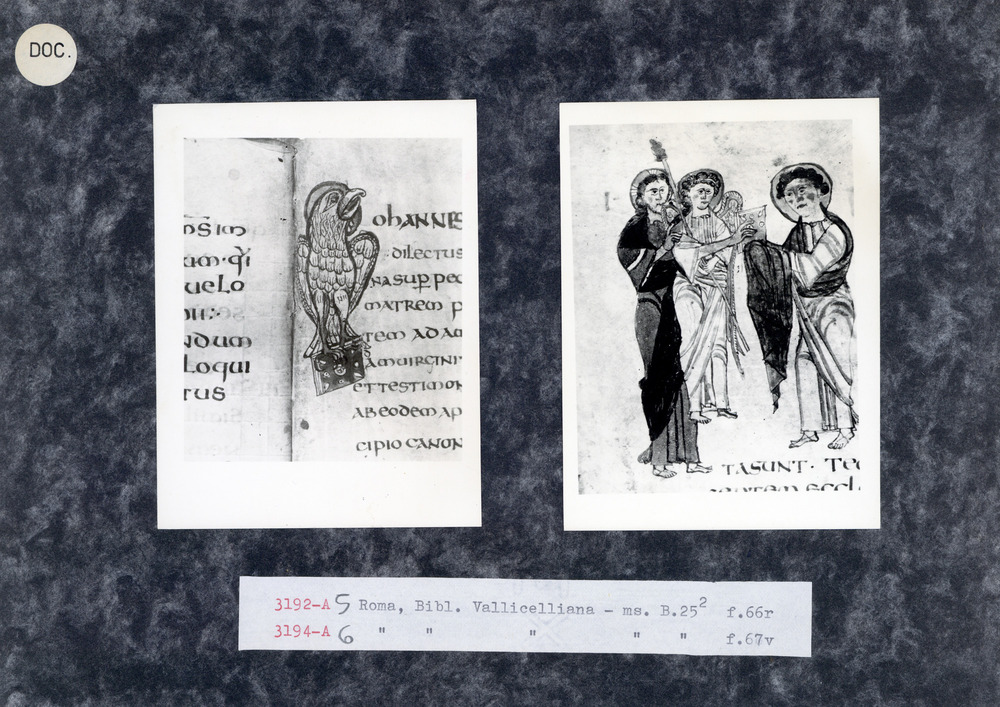 DOC.
osim
ueLo
loqui
rus
ohANNES
dilectus
NA SUP PEC
mATREM P
TEM AD AM
AMUIRGINI
ET TESTIMON
AB EODEM AP
CIPIO CANON
TASUNT· TEC
3192-A 5 Roma, Bibl. Vallicelliana - ms. B.25² f.66r
3194-A 6 " " " " " f.67v